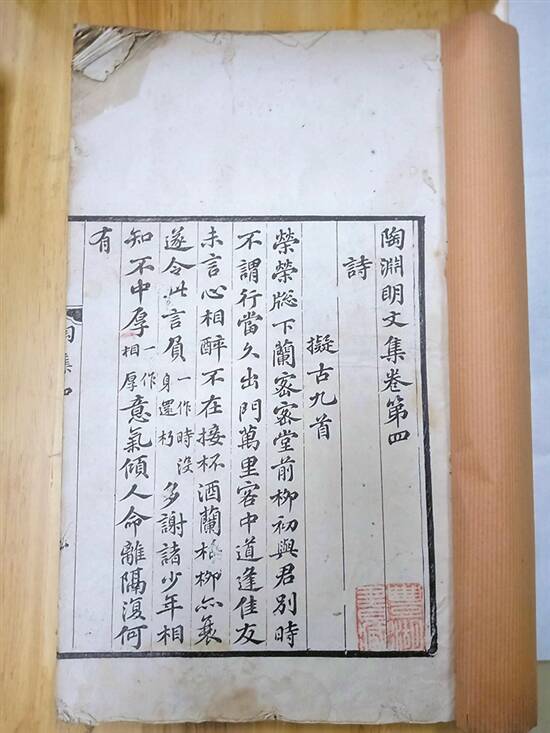 陶淵明文集卷第四
詩
擬古九首
榮榮牎下蘭密密堂前柳初與君別時
不謂行當久出門萬里客中道逢佳友
未言心相醉不在接杯酒蘭枯柳亦衰
遂令此言負一作時没身還朽多謝諸少年相
知不中厚一作相厚意氣傾人命離隔復何
有